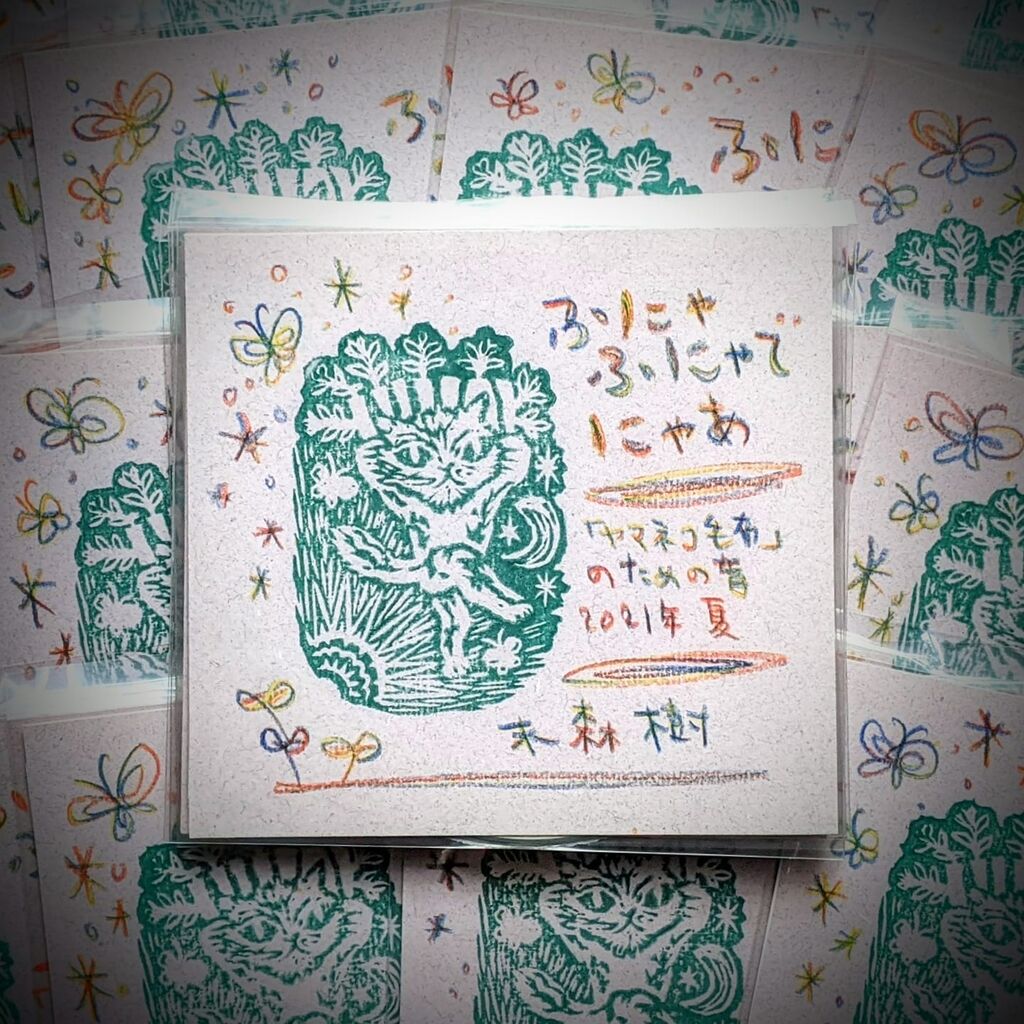 ふりにゃ
ふりにゃで
にゃあ
「ヤマネコ毛布」
のための音
2021年 夏
末森樹
ふ
ふりに